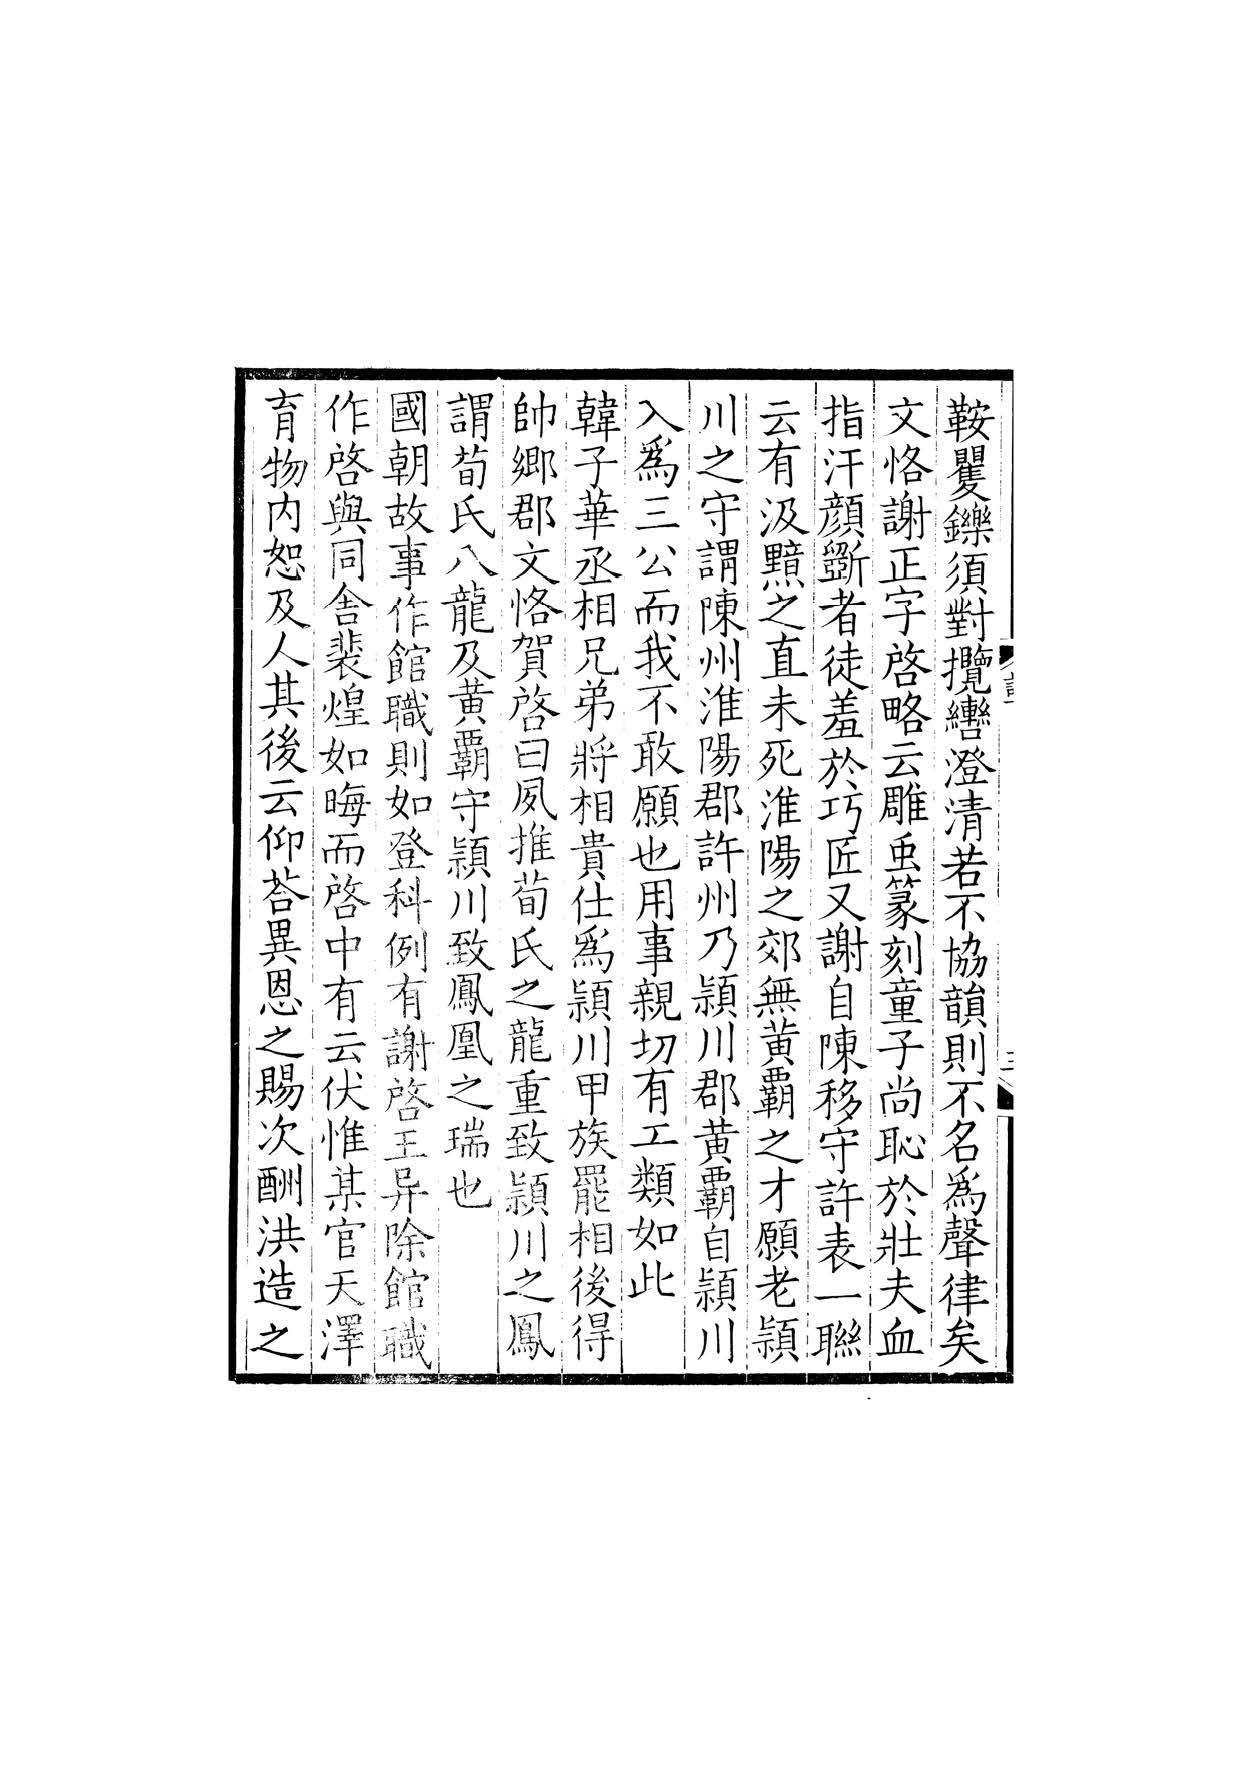 鞍矍鑠須對攬轡澄清若不協韻則不名爲聲律矣
文恪謝正字啓略云雕虫篆刻童子尚恥於壯夫血
指汗顔斵者徒羞於巧匠又謝自陳移守許表一聯
云有汲黯之直未死淮陽之郊無黄霸之才願老頴
川之守謂陳州淮陽郡許州乃頴川郡黄霸自頴川
入爲三公而我不敢願也用事親切有工類如此
韓子華丞相兄弟將相貴仕爲頴川甲族罷相後得
帥鄉郡文恪賀啓曰夙推荀氏之龍重致頴川之鳳
謂荀氏八龍及黄霸守頴川致鳳凰之瑞也
國朝故事作館職則如登科例有謝啓王异除館職
作啓與同舍裴煌如晦而啓中有云伏惟某官天澤
育物内恕及人其後云仰荅異恩之賜次酬洪造之